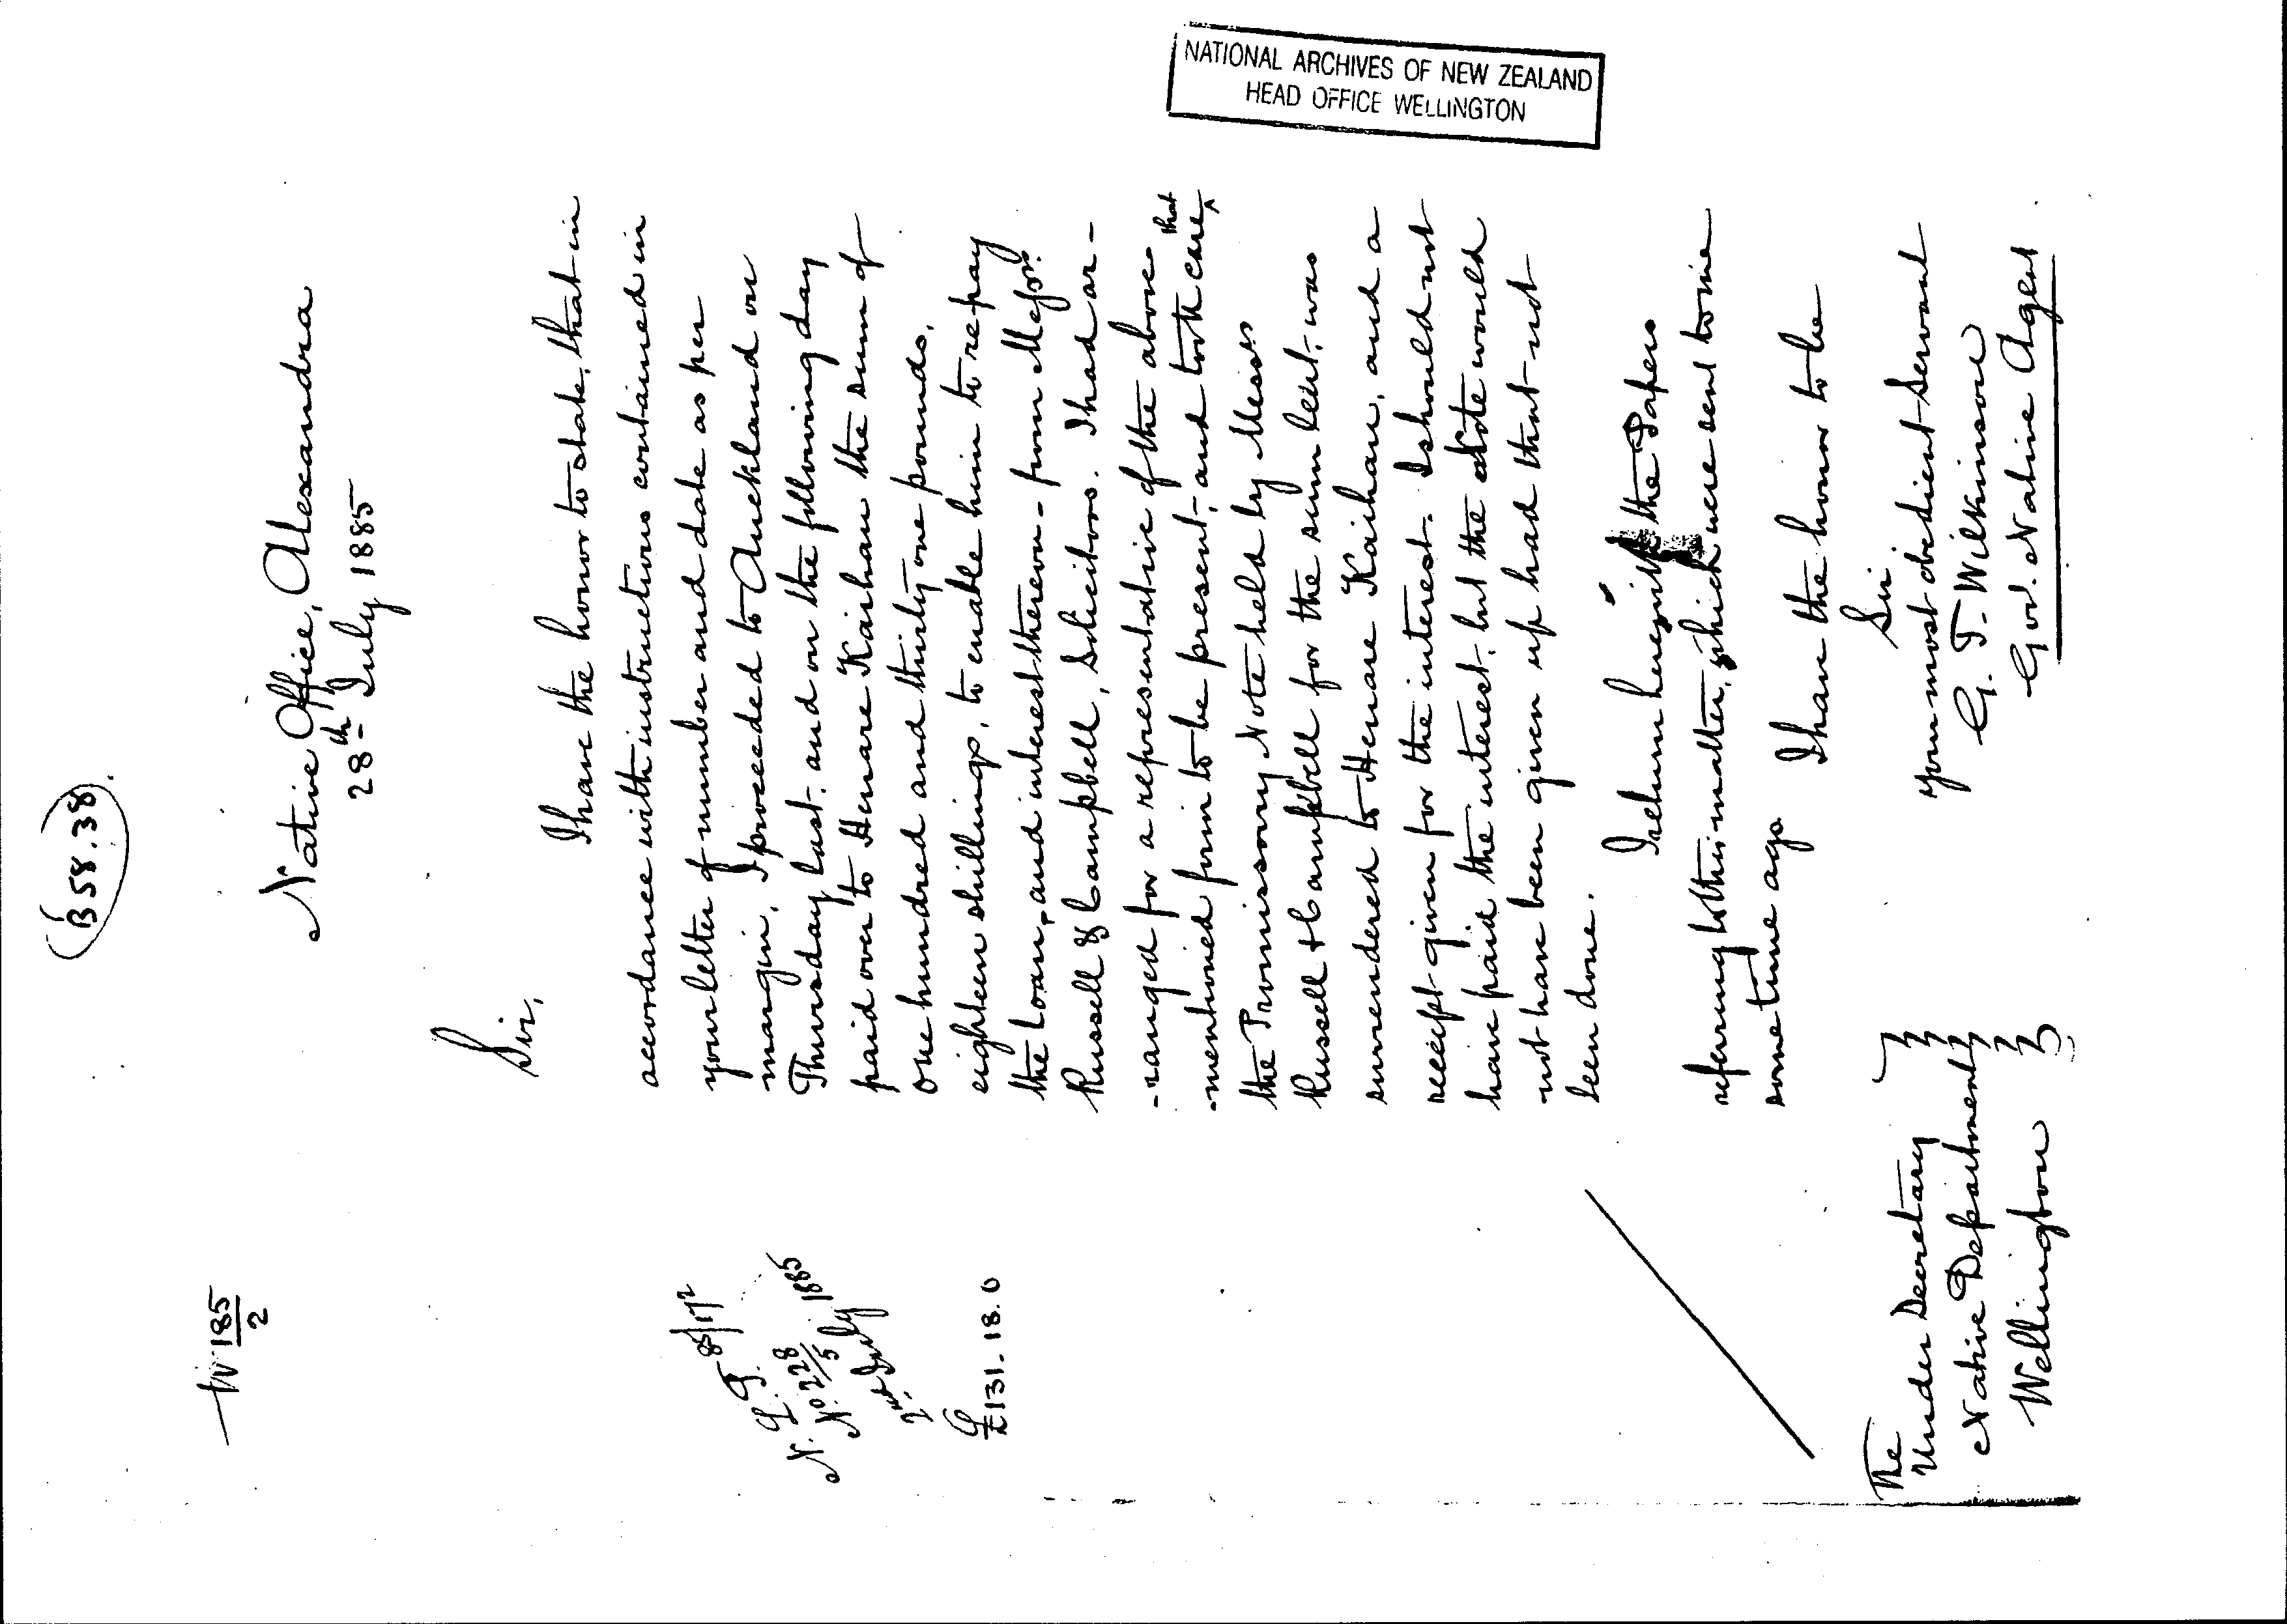 B 58.38
W 185/2
Native Office, Alexandra
28th July 1885
Sir,
I have the honor to state, that in
accordance with instructions contained in
your letter of number and date as per
margin, I proceeded to Auckland on
Thursday last, and on the following day
paid over to Henare Kaihau the sum of
one hundred and thirty one pounds,
eighteen shillings, to enable him to repay
the Loan, and interest thereon - from Messrs
Russell & Campbell, Solicitors. I had ar-
-ranged for a representative of the above
-mentioned firm to be present, and took care that
the Promissory Note held by Messrs
Russell & Campbell for the sum lent, was
surrendered to Henare Kaihau, and a
receipt given for the interest. I should not
have paid the interest, but the Note would
not have been given up had that not
been done.
I return herewith the Papers
referring to this matter, which were sent to me
some time ago.
I have the honor to be
Sir
your most obedient Servant
G. T. Wilkinson
Gov. Native Agent
N. L. P. 85/172
No 228/5
2nd July 1885
£131.18.0
The
Under Secretary
Native Department
Wellington
NATIONAL ARCHIVES OF NEW ZEALAND
HEAD OFFICE WELLINGTON